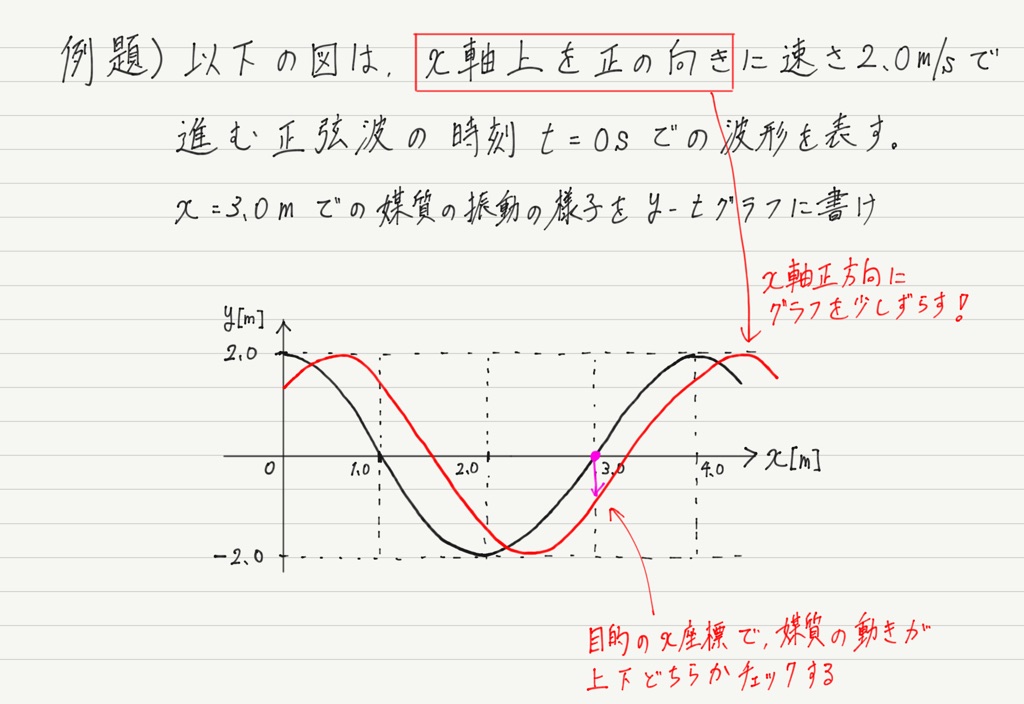 例題) 以下の図は、x軸上を正の向きに速さ2.0m/sで
進む正弦波の時刻 t=0s での波形を表す。
x=3.0m での媒質の振動の様子を y-tグラフに書け
x軸正方向に
グラフを少しずらす!
y[m]
2.0
0
1.0
2.0
3.0
4.0
x[m]
-2.0
目的のx座標で、媒質の動きが
上下どちらかチェックする